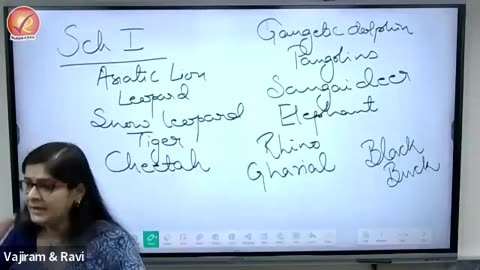 Sch I
Asiatic Lion
Leopard
Snow leopard
Tiger
Cheetah
Gangetic dolphin
Pangolins
Sangai deer
Elephant
Rhino
Gharial
Black
Buck
Vajiram & Ravi